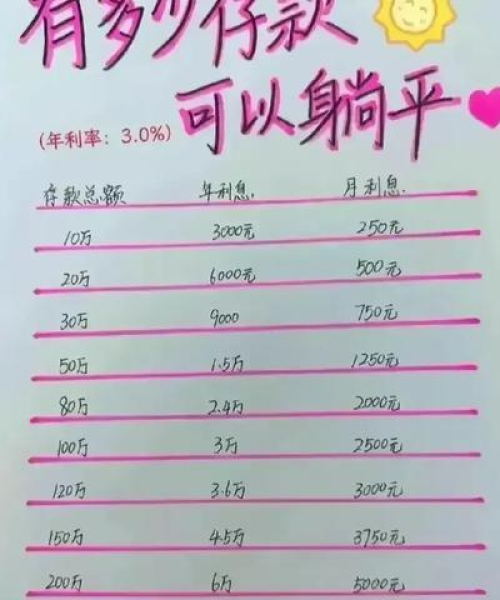 有多少存款
可以躺平
(年利率：3.0%)
存款总额 年利息. 月利息.
10万 3000元 250元
20万 6000元 500元
30万 9000 750元
50万 1.5万 1250元
80万 2.4万 2000元
100万 3万 2500元
120万 3.6万 3000元
150万 4.5万 3750元
200万 6万 5000元